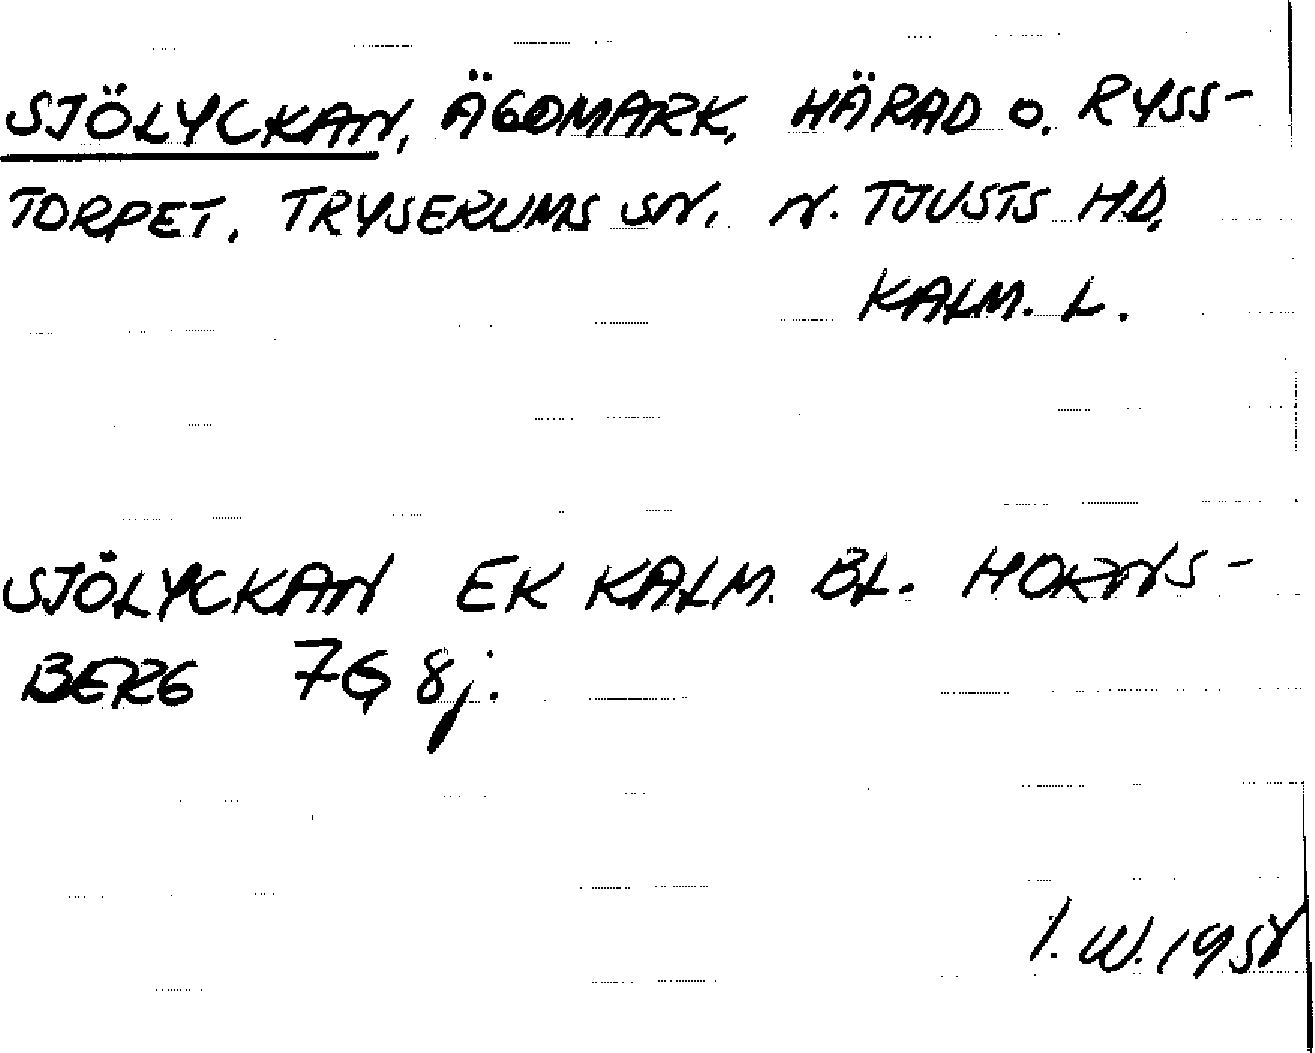 SJÖLYCKAN, ÄGOMARK, HÄRAD O. RYSS-
TORPET, TRYSERUMS SN. N. TJUSTS HD,
KALM. L.
SJÖLYCKAN EK KALM. BL. HORNS-
BERG 7G 8j.
I. W. 1958